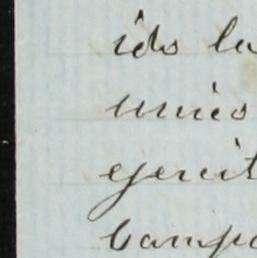 ids la
unico
ejercit
Campa